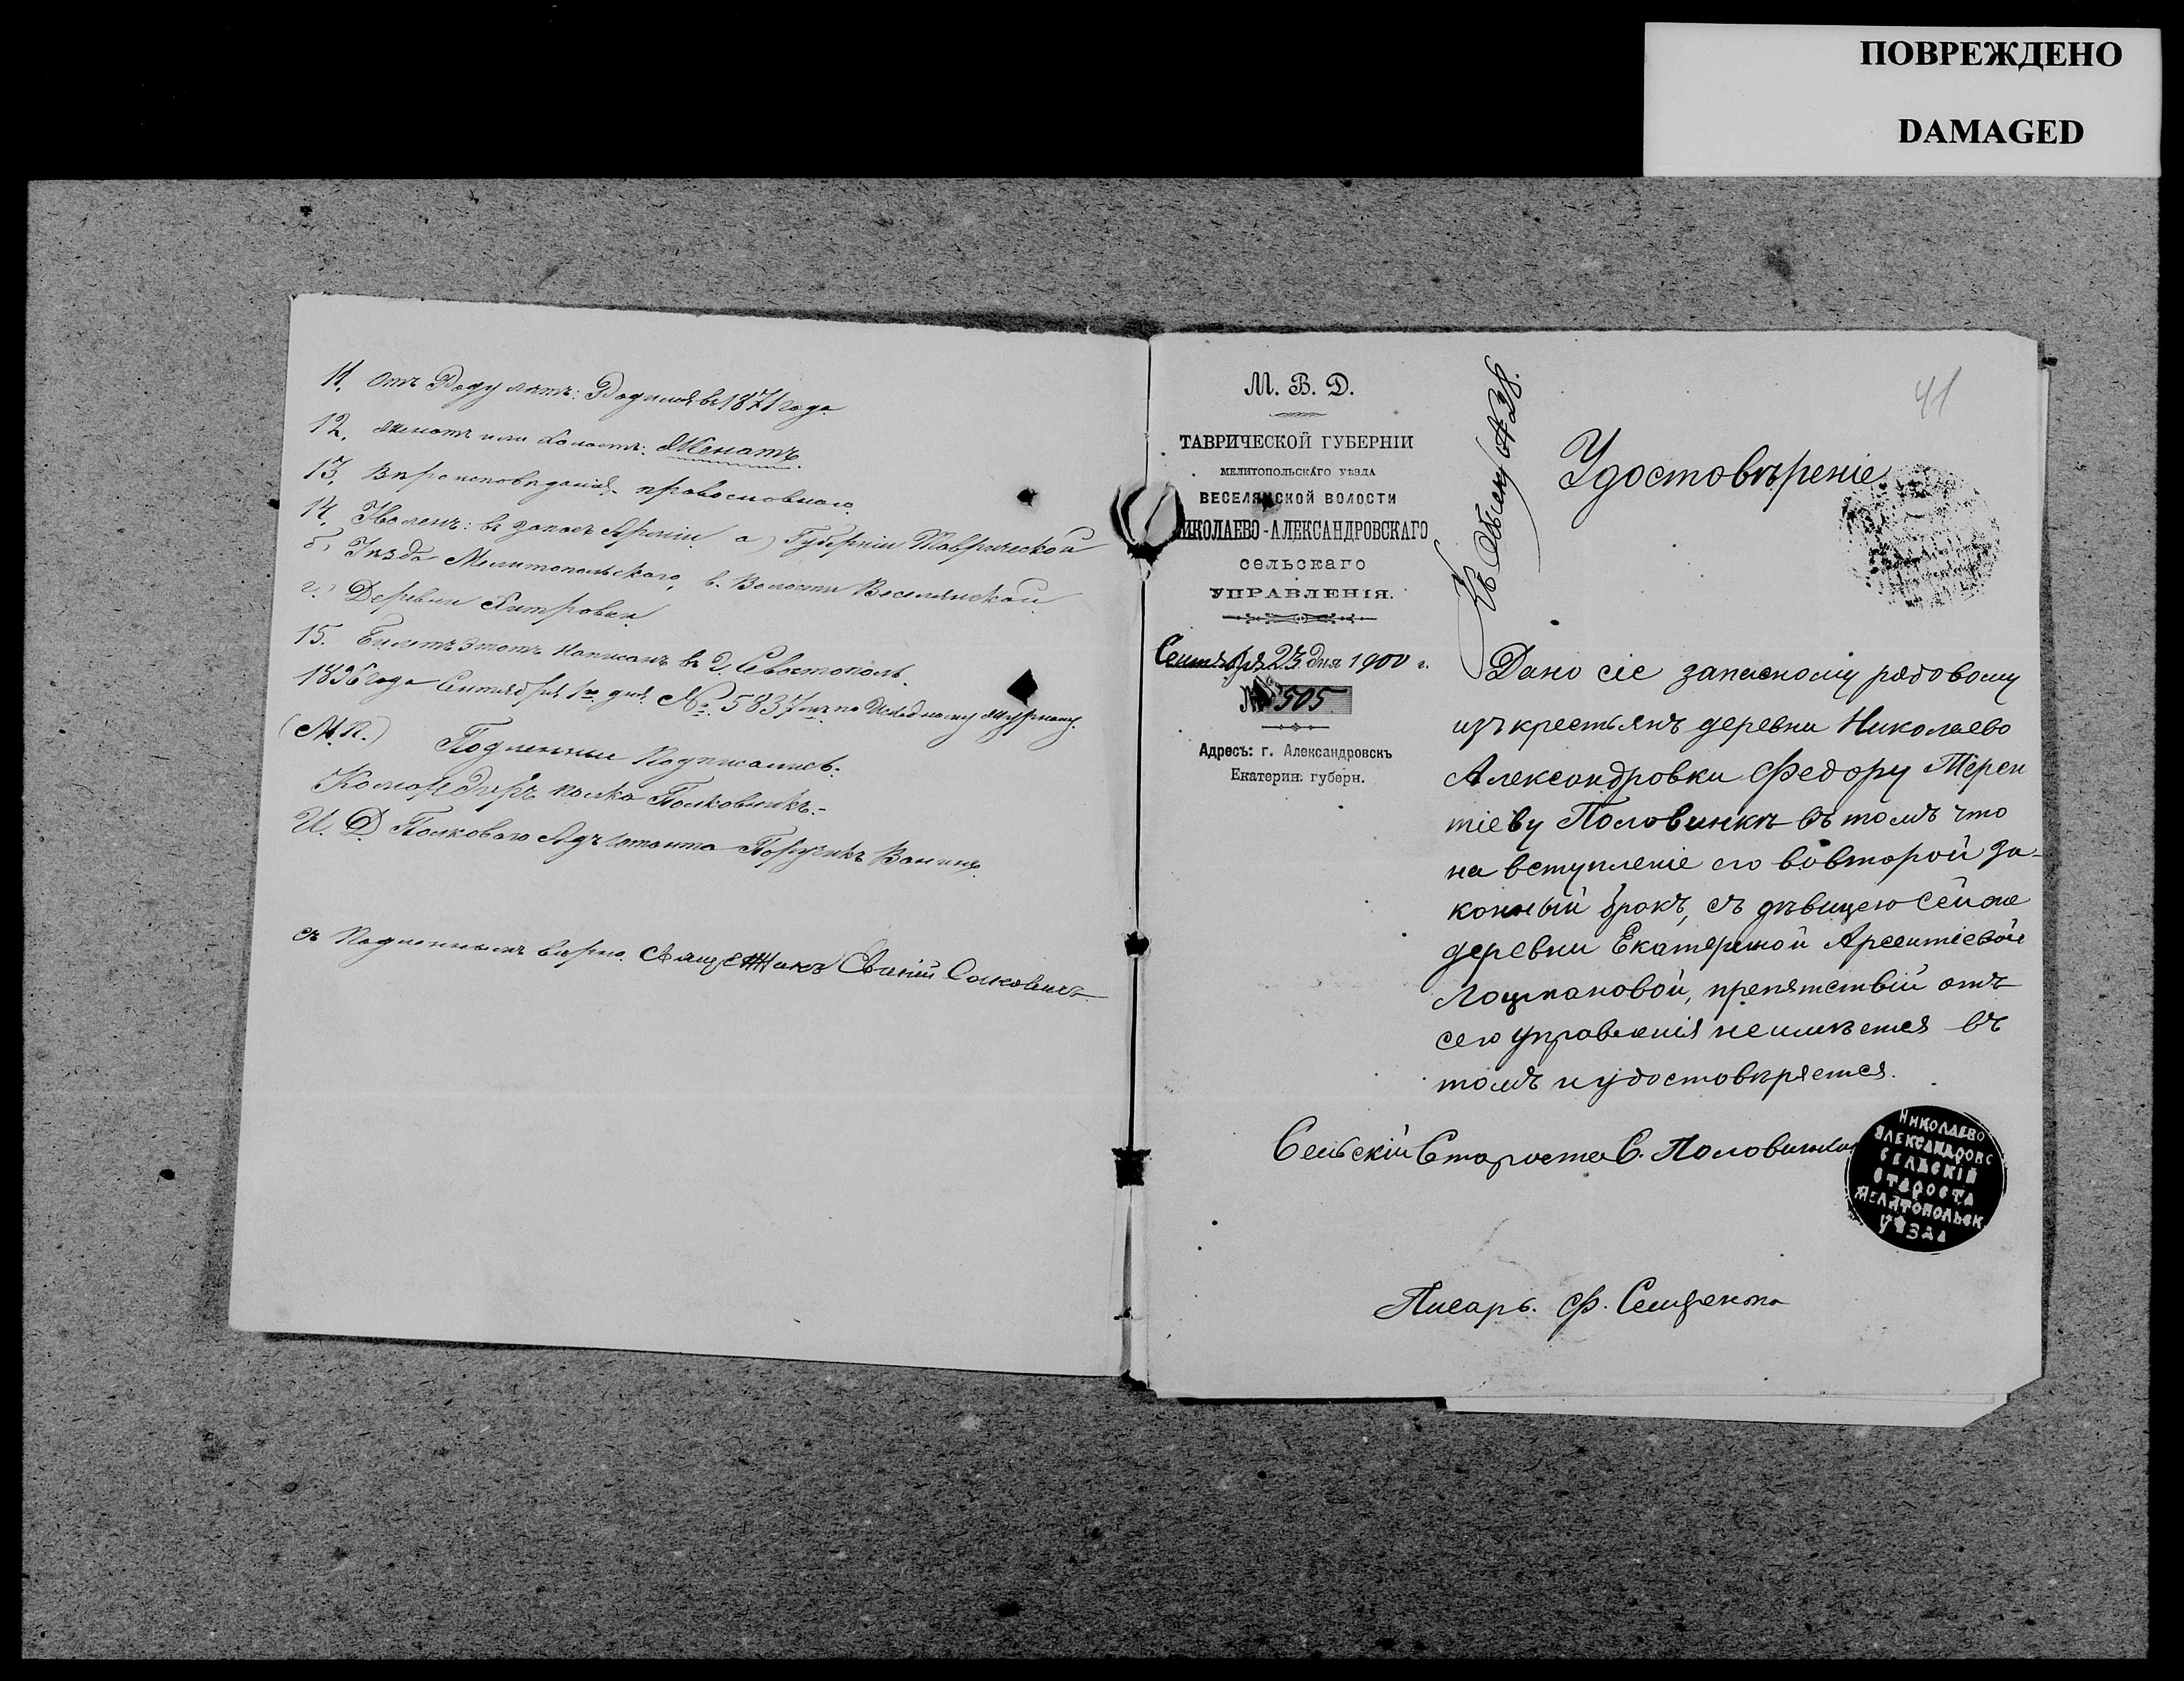 ПОВРЕЖДЕНО
DAMAGED
11. Отъ Роду лѣтъ: Родился въ 1871 года
12. Женатъ или холостъ: Женатъ.
13. Вѣроисповѣданія православнаго.
14. Уволенъ: въ запасъ Арміи а) Губерніи Таврической
б, Уѣзда Мелитопольскаго, в. Волости Веселянской
г.) Деревни
15. Билетъ этотъ написанъ въ г. Севастополь.
1896 года Сентября 1го дня № 5837 по Исходному журналу.
(М.П.) Подленные Подписались:
Командиръ полка Полковникъ.-
И. Д Полковаго Адъютанта Поручикъ
съ Подленнымъ вѣрно. Священникъ
М. В. Д.
ТАВРИЧЕСКОЙ ГУБЕРНІИ
МЕЛИТОПОЛЬСКАГО УѢЗДА
ВЕСЕЛЯНСКОЙ ВОЛОСТИ
НИКОЛАЕВО-АЛЕКСАНДРОВСКАГО
СЕЛЬСКАГО
УПРАВЛЕНІЯ.
Сентября 23 дня 1900 г.
№ 505
Адресъ: г. Александровскъ
Екатерин. губерн.
Къ Обыску № 38.
41
Удостовѣреніе
Дано сіе запасному рядовому
изъ крестьянъ деревни Николаево
Александровки Федору Терен
тіеву Половинкѣ въ томъ что
на вступленіе его вовторой за-
конный бракъ, съ дѣвицею сей же
деревни Екатериной Арсентіевой
Лоцмановой, препятствій отъ
сего управленія неимѣется въ
томъ и удостовѣряется.
Сельскій Староста С. Половинка
НИКОЛАЕВО
АЛЕКСАНДРОВС
СЕЛЬСКІЙ
СТАРОСТА
МЕЛИТОПОЛЬСК
УѢЗДА
Писарь. Ф.